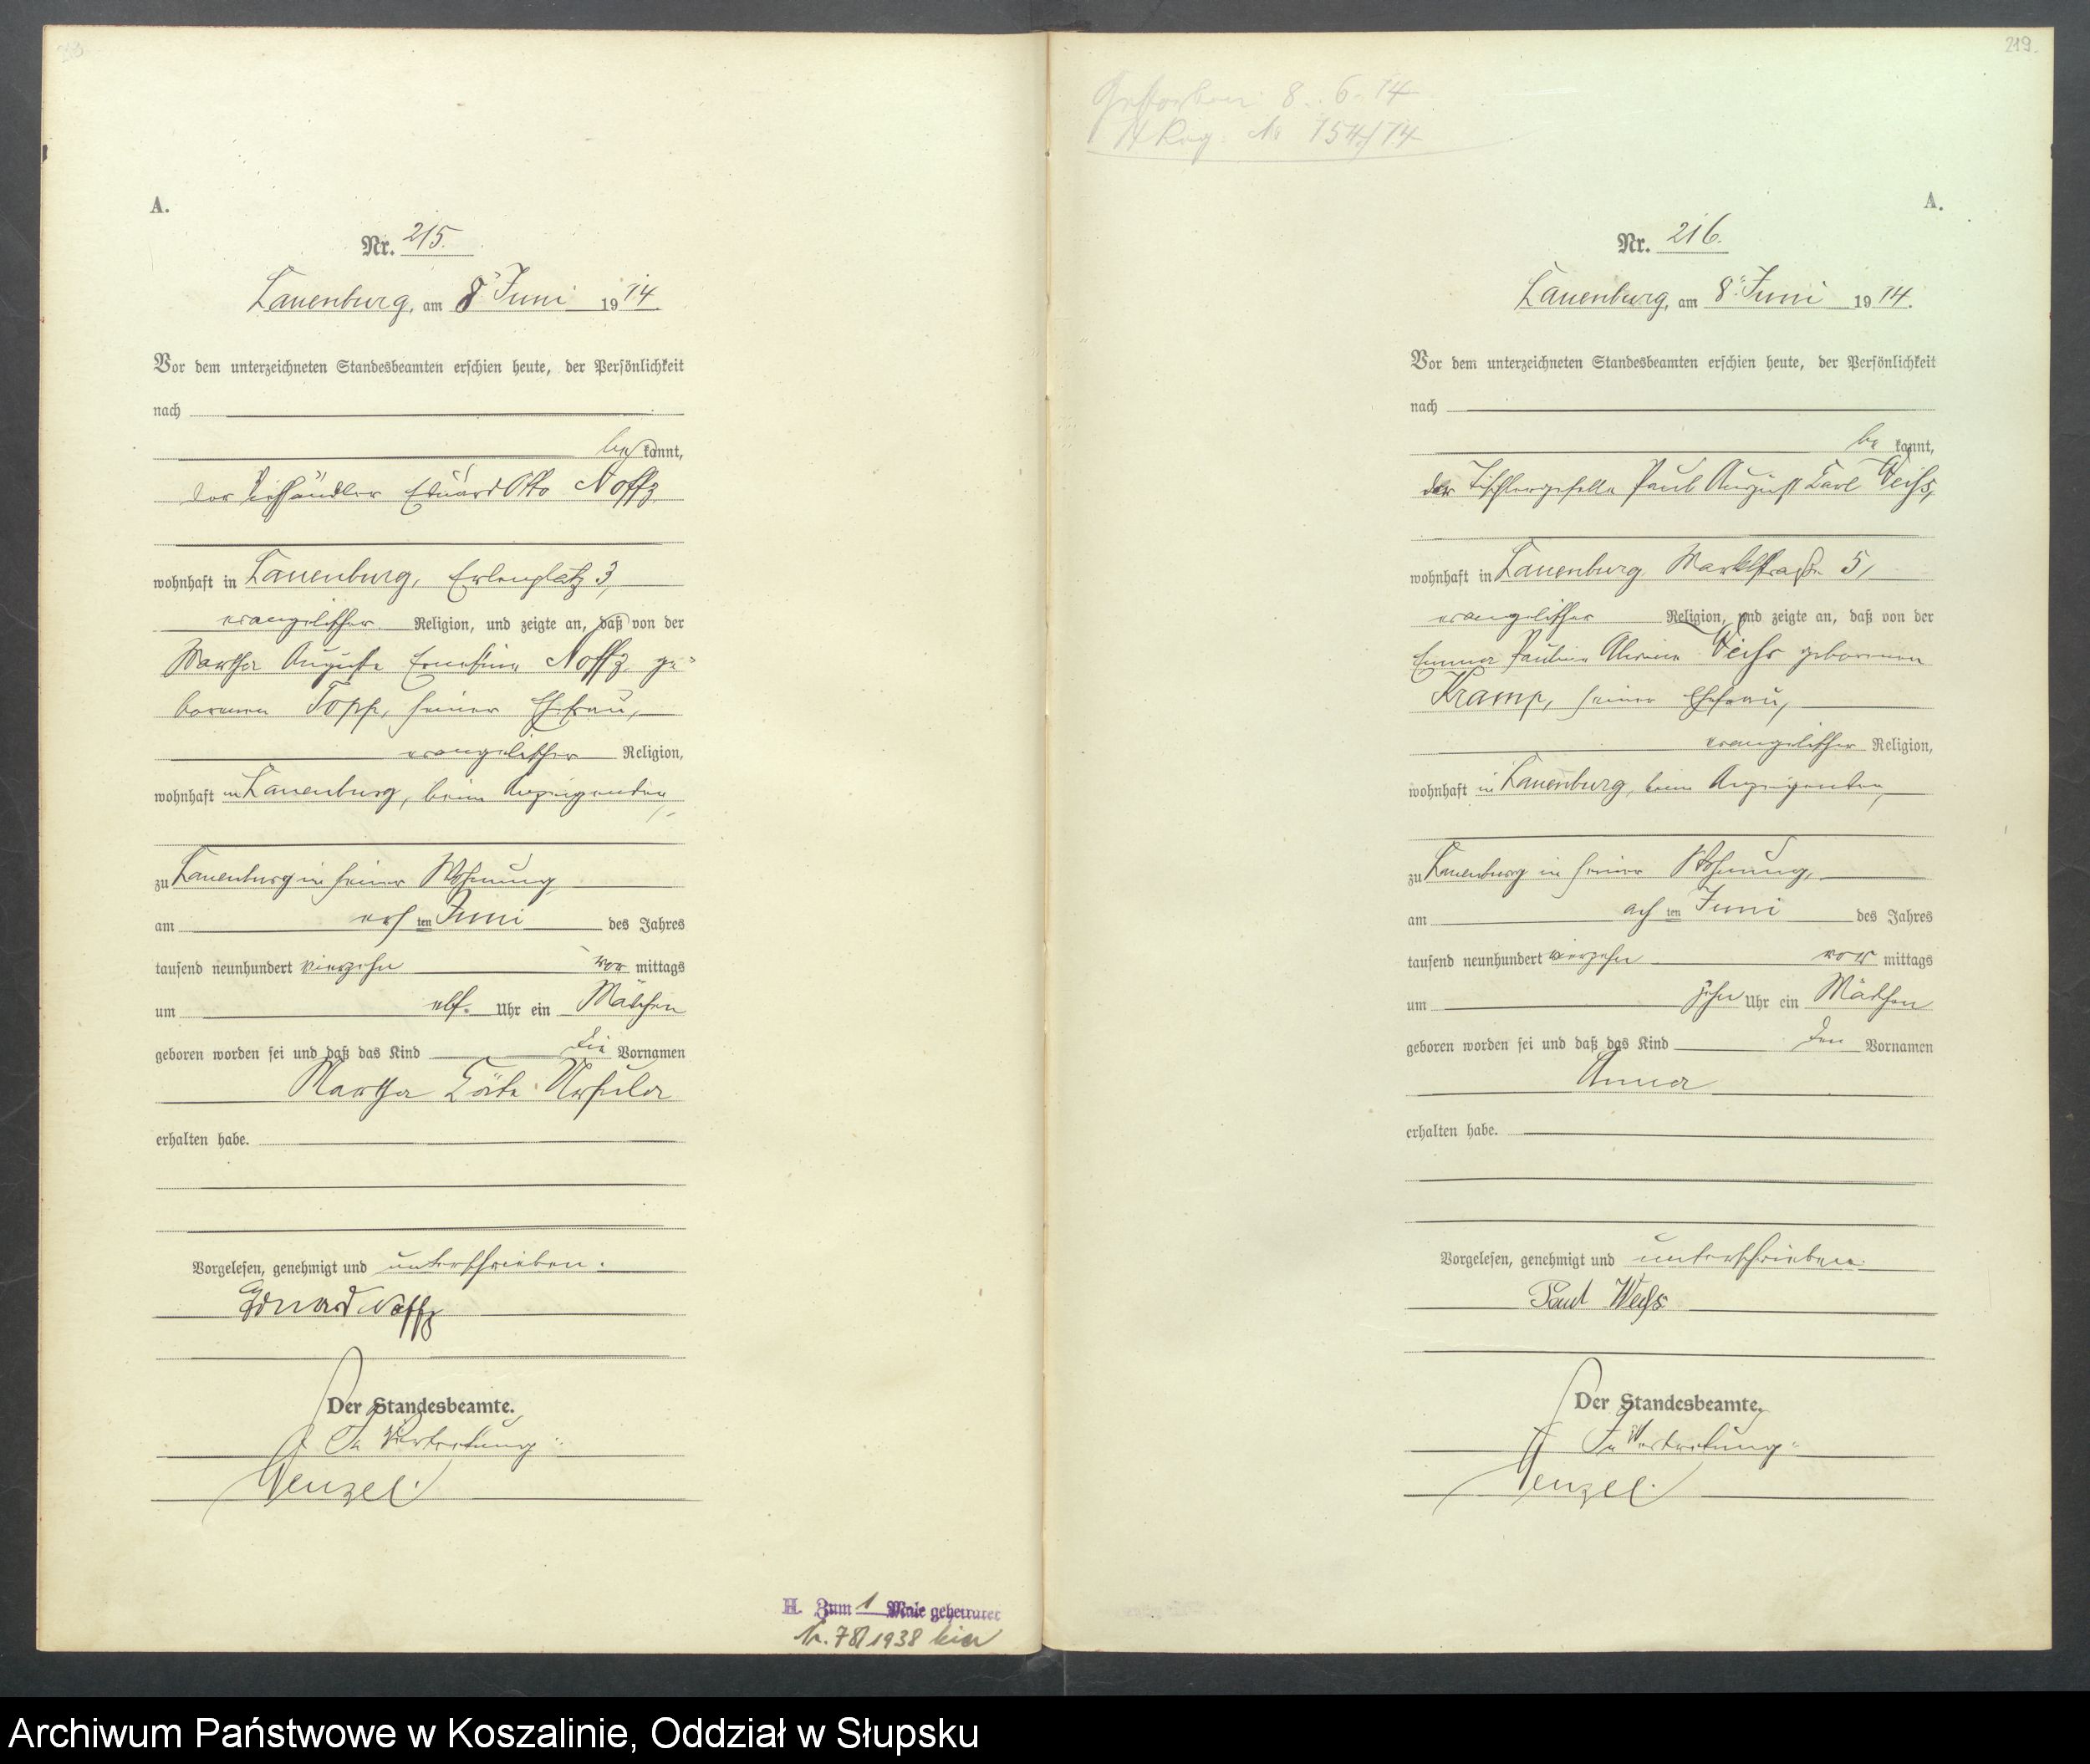 A.
Nr. 215.
Lauenburg, am 8. Juni 1914.
Vor dem unterzeichneten Standesbeamten erschien heute, der Persönlichkeit
nach
be kannt,
der Eduard Otto Noffz
wohnhaft in Lauenburg, Erlenplatz 3,
evangelischer Religion, und zeigte an, daß von der
Martha Auguste Ernestine Noffz ge-
borenen Topp, seiner Ehefrau,
evangelischer Religion,
wohnhaft in Lauenburg, beim Anzeigenden,
zu Lauenburg in seiner Wohnung
am ersten Juni des Jahres
tausend neunhundert vierzehn vor mittags
um elf Uhr ein Mädchen
geboren worden sei und daß das Kind die Vornamen
Martha Käte Ursula
erhalten habe.
Vorgelesen, genehmigt und unterschrieben.
Eduard Noffz
Der Standesbeamte.
In Vertretung:
Wenzel.
H. Zum 1 Male geheiratet
Nr. 78/1938 hier
219.
Gestorben: 8. 6. 14
Reg. No 154/14
A.
Nr. 216.
Lauenburg, am 8. Juni 1914.
Vor dem unterzeichneten Standesbeamten erschien heute, der Persönlichkeit
nach
be kannt,
der Tischlergeselle Paul August Karl Weiß,
wohnhaft in Lauenburg Marktstraße 5,
evangelischer Religion, und zeigte an, daß von der
Emma Pauline Alwine Weiß geborenen
Kramp, seiner Ehefrau,
evangelischer Religion,
wohnhaft in Lauenburg, beim Anzeigenden,
zu Lauenburg in seiner Wohnung,
am achten Juni des Jahres
tausend neunhundert vierzehn vor mittags
um zehn Uhr ein Mädchen
geboren worden sei und daß das Kind den Vornamen
Anna
erhalten habe.
Vorgelesen, genehmigt und unterschrieben.
Paul Weiß
Der Standesbeamte.
In Vertretung:
Wenzel.
Archiwum Państwowe w Koszalinie, Oddział w Słupsku